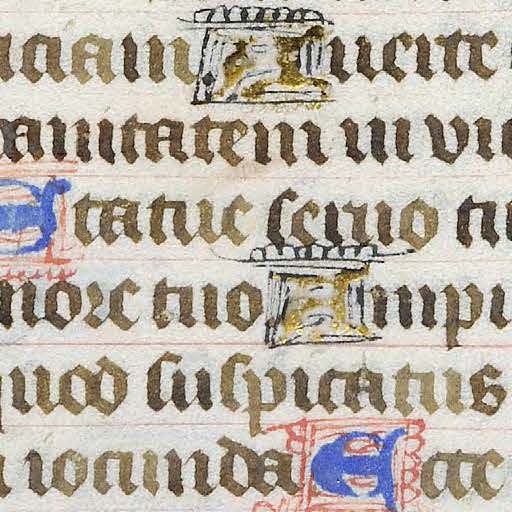 ciam Auerte
anitatem in vi
Statue seruo tu
more tuo Ampu
quod suspicatus
a iocunda Ecce